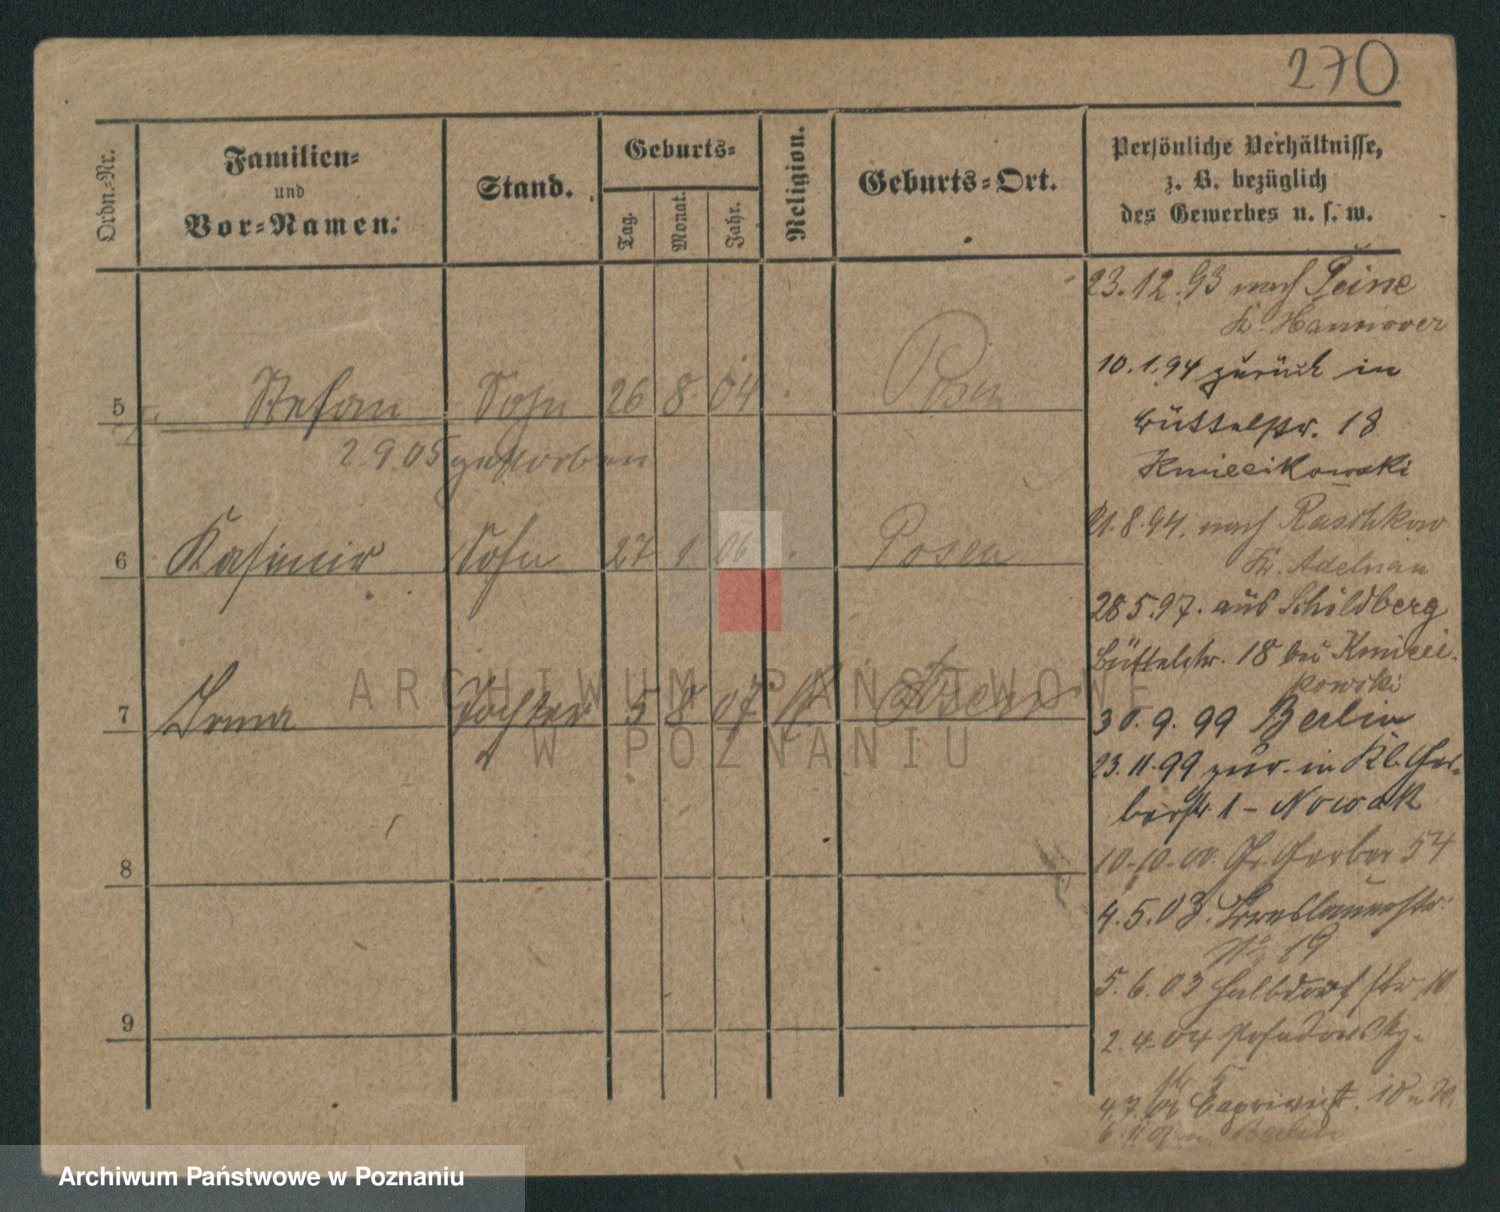 270
Ordn.-Nr.
Familien-
und
Vor-Namen.
Stand.
Geburts-
Tag.
Monat.
Jahr.
Religion.
Geburts-Ort.
Persönliche Verhältnisse,
z. B. bezüglich
des Gewerbes u. s. w.
23.12.93 nach Peine
Kr. Hannover
10.1.94 zurück in
Büttelstr. 18
Kmiecikowski
5 Stefan Sohn 26 8 04 Posen
2.9.05 gestorben
21.8.94. nach Raschkow
Kr. Adelnau
6 Kasimir Sohn 27 1 06 Posen
28 5.97. aus Schildberg
Büttelstr. 18 bei Kmieci-
kowski
7 Irma Tochter 5 8 07 Posen
30.9.99 Berlin
23.11.99 zur. in Kl. Ger-
berstr 1 - Nowak
8
10.10.00. Gr. Gerber 54
4.5.03. Breslauerstr.
No 19
5.6.03 Halbdorfstr 10
9
2.4.04 Posadowsky-
str 5
4.7. Caprivist.
Berlin
ARCHIWUM PAŃSTWOWE
W POZNANIU
Archiwum Państwowe w Poznaniu